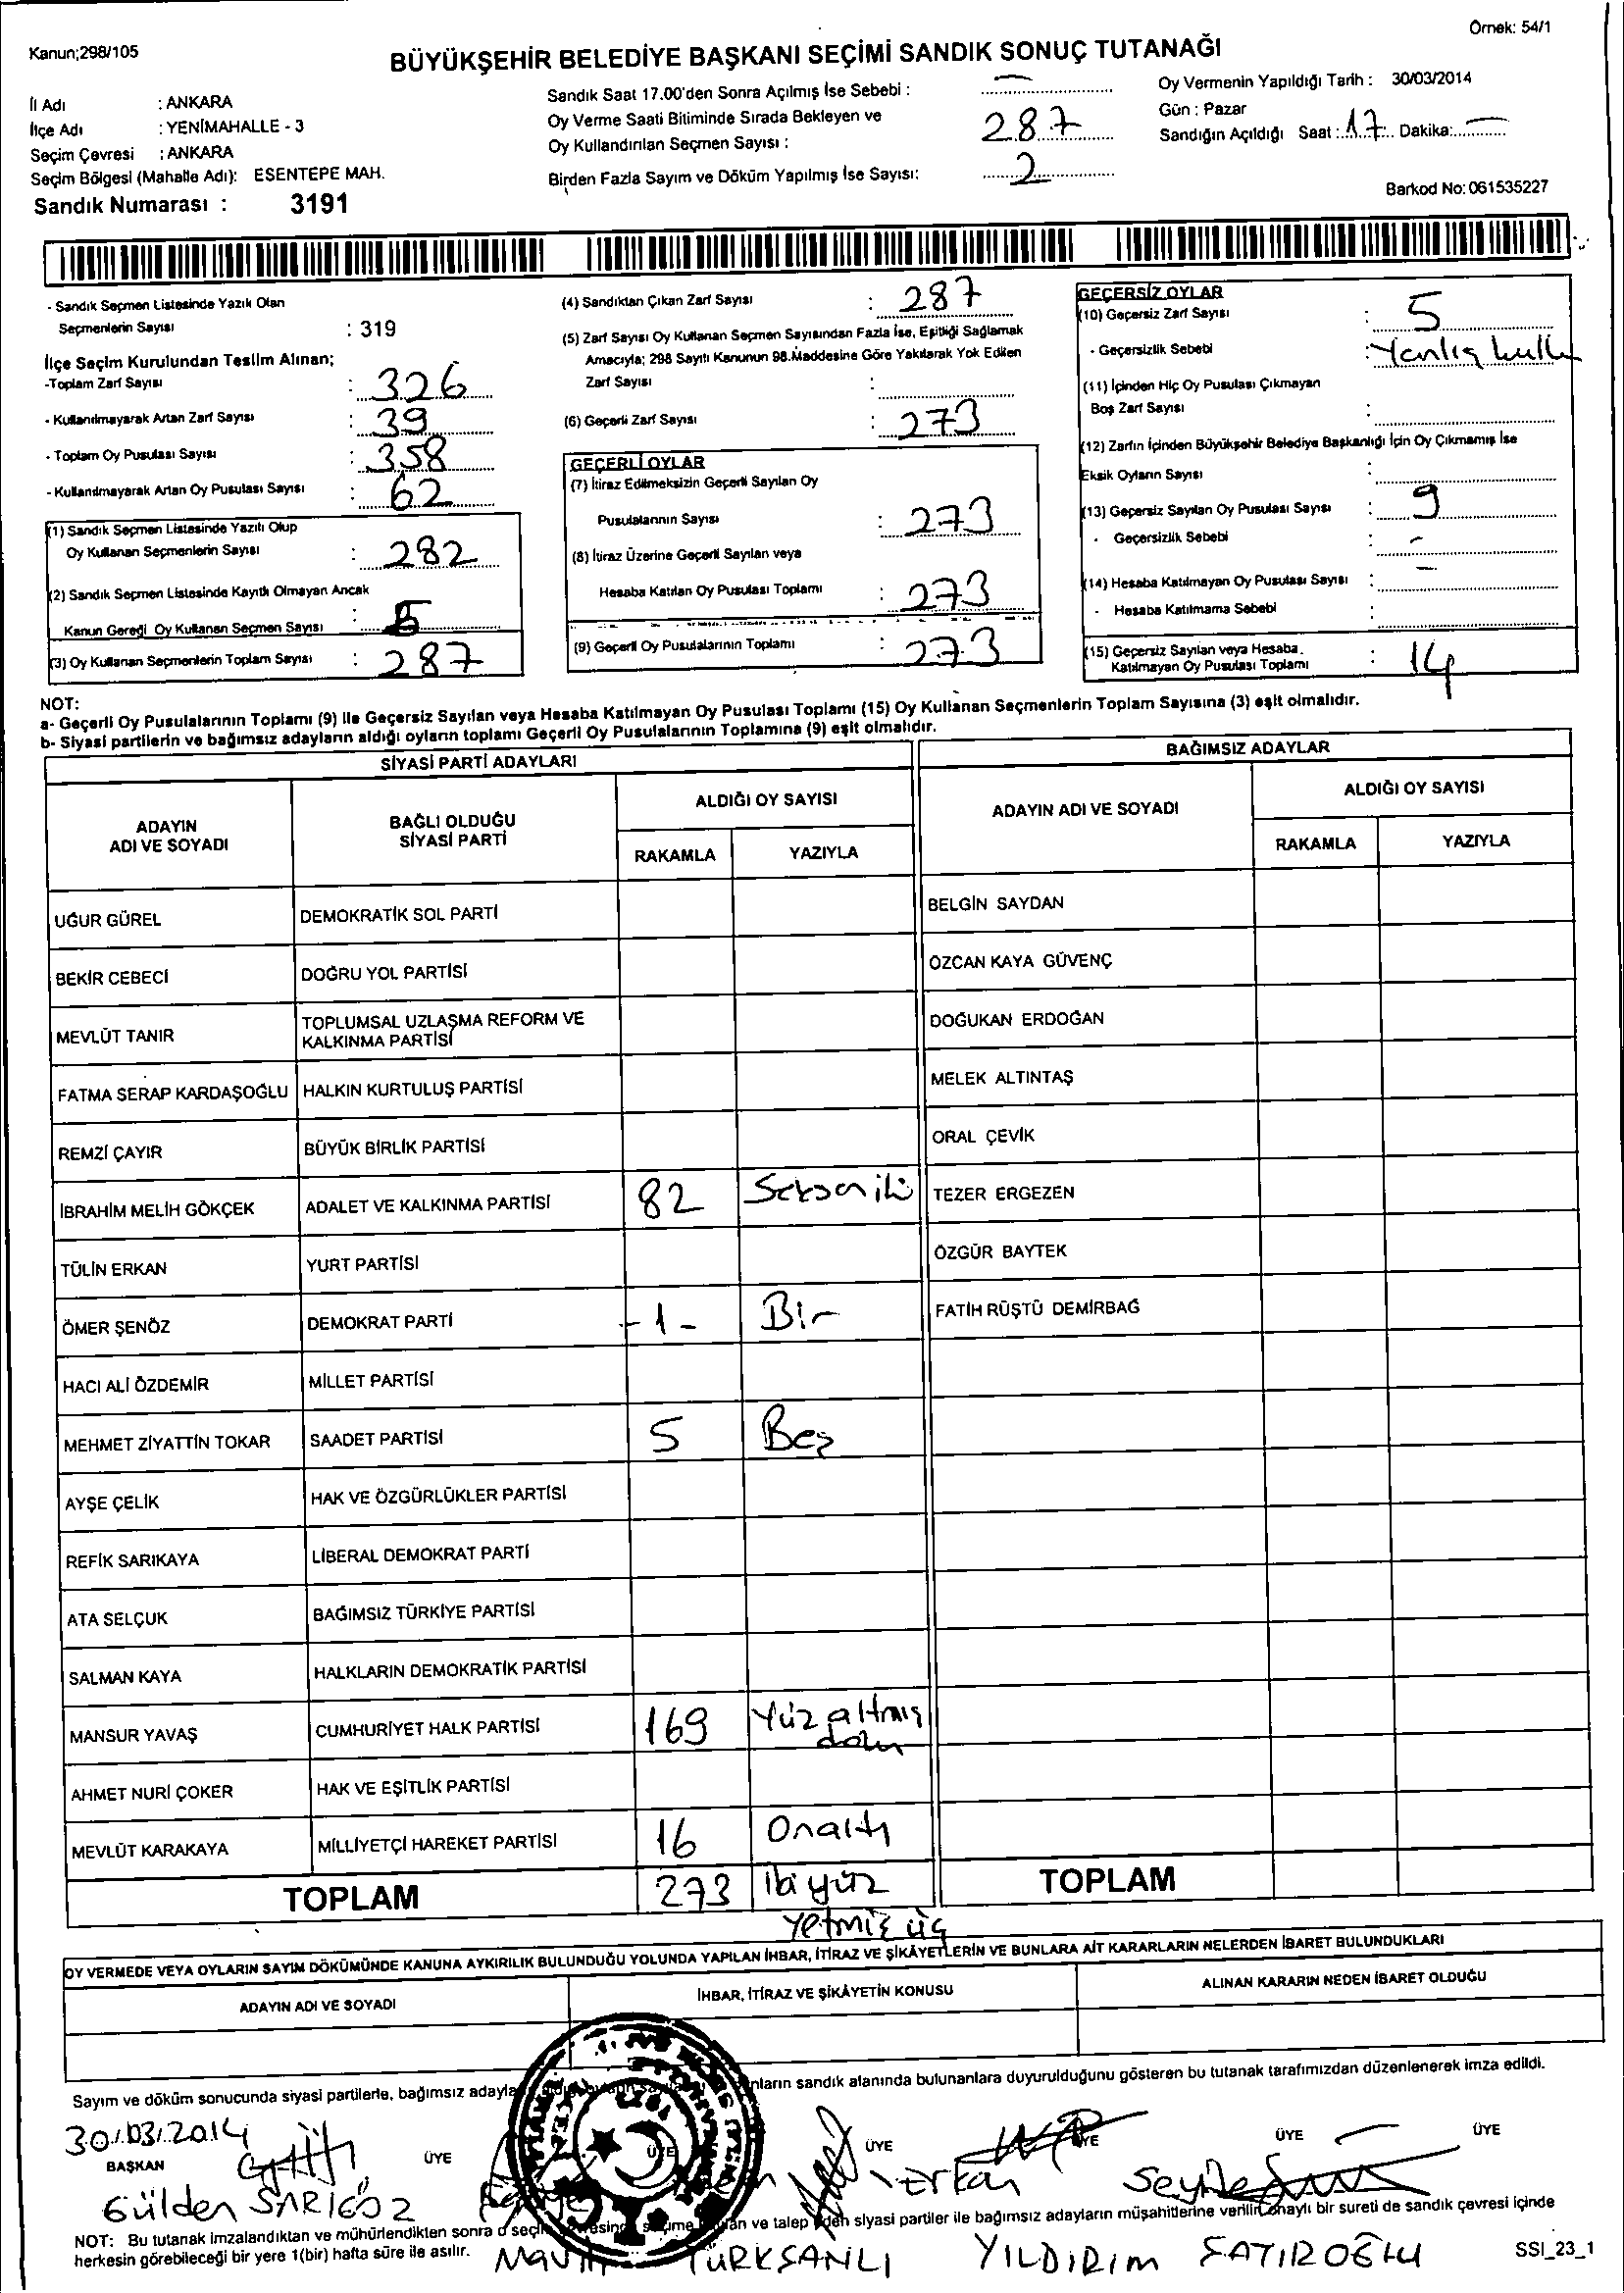 Örnek: 54/1
Kanun;298/105
BÜYÜKŞEHİR BELEDİYE BAŞKANI SEÇİMİ SANDIK SONUÇ TUTANAĞI
İl Adı : ANKARA
İlçe Adı : YENİMAHALLE - 3
Seçim Çevresi : ANKARA
Seçim Bölgesi (Mahalle Adı): ESENTEPE MAH.
Sandık Numarası : 3191
Sandık Saat 17.00'den Sonra Açılmış İse Sebebi :
Oy Verme Saati Bitiminde Sırada Bekleyen ve
Oy Kullandırılan Seçmen Sayısı : 287
Birden Fazla Sayım ve Döküm Yapılmış İse Sayısı: 2
Oy Vermenin Yapıldığı Tarih : 30/03/2014
Gün : Pazar
Sandığın Açıldığı Saat : 17 Dakika:
Barkod No: 061535227
- Sandık Seçmen Listesinde Yazılı Olan
Seçmenlerin Sayısı : 319
İlçe Seçim Kurulundan Teslim Alınan;
-Toplam Zarf Sayısı : 326
- Kullanılmayarak Artan Zarf Sayısı : 39
- Toplam Oy Pusulası Sayısı : 358
- Kullanılmayarak Artan Oy Pusulası Sayısı : 62
(1) Sandık Seçmen Listesinde Yazılı Olup
Oy Kullanan Seçmenlerin Sayısı : 282
(2) Sandık Seçmen Listesinde Kayıtlı Olmayan Ancak
Kanun Gereği Oy Kullanan Seçmen Sayısı : 5
(3) Oy Kullanan Seçmenlerin Toplam Sayısı : 287
(4) Sandıktan Çıkan Zarf Sayısı : 287
(5) Zarf Sayısı Oy Kullanan Seçmen Sayısından Fazla İse, Eşitliği Sağlamak
Amacıyla; 298 Sayılı Kanunun 98.Maddesine Göre Yakılarak Yok Edilen
Zarf Sayısı :
(6) Geçerli Zarf Sayısı : 273
GEÇERLİ OYLAR
(7) İtiraz Edilmeksizin Geçerli Sayılan Oy
Pusulalarının Sayısı : 273
(8) İtiraz Üzerine Geçerli Sayılan veya
Hesaba Katılan Oy Pusulası Toplamı : 273
(9) Geçerli Oy Pusulalarının Toplamı : 273
GEÇERSİZ OYLAR
(10) Geçersiz Zarf Sayısı : 5
- Geçersizlik Sebebi : Yanlış kull
(11) İçinden Hiç Oy Pusulası Çıkmayan
Boş Zarf Sayısı :
(12) Zarfın İçinden Büyükşehir Belediye Başkanlığı İçin Oy Çıkmamış İse
Eksik Oyların Sayısı :
(13) Geçersiz Sayılan Oy Pusulası Sayısı : 9
- Geçersizlik Sebebi : -
(14) Hesaba Katılmayan Oy Pusulası Sayısı : -
- Hesaba Katılmama Sebebi :
(15) Geçersiz Sayılan veya Hesaba
Katılmayan Oy Pusulası Toplamı : 14
NOT:
a- Geçerli Oy Pusulalarının Toplamı (9) ile Geçersiz Sayılan veya Hesaba Katılmayan Oy Pusulası Toplamı (15) Oy Kullanan Seçmenlerin Toplam Sayısına (3) eşit olmalıdır.
b- Siyasi partilerin ve bağımsız adayların aldığı oyların toplamı Geçerli Oy Pusulalarının Toplamına (9) eşit olmalıdır.
SİYASİ PARTİ ADAYLARI
BAĞIMSIZ ADAYLAR
ADAYIN ADI VE SOYADI
BAĞLI OLDUĞU SİYASİ PARTİ
ALDIĞI OY SAYISI
RAKAMLA YAZIYLA
ADAYIN ADI VE SOYADI
ALDIĞI OY SAYISI
RAKAMLA YAZIYLA
UĞUR GÜREL DEMOKRATİK SOL PARTİ BELGİN SAYDAN
BEKİR CEBECİ DOĞRU YOL PARTİSİ ÖZCAN KAYA GÜVENÇ
MEVLÜT TANIR TOPLUMSAL UZLAŞMA REFORM VE KALKINMA PARTİSİ DOĞUKAN ERDOĞAN
FATMA SERAP KARDAŞOĞLU HALKIN KURTULUŞ PARTİSİ MELEK ALTINTAŞ
REMZİ ÇAYIR BÜYÜK BİRLİK PARTİSİ ORAL ÇEVİK
İBRAHİM MELİH GÖKÇEK ADALET VE KALKINMA PARTİSİ 82 Seksen iki TEZER ERGEZEN
TÜLİN ERKAN YURT PARTİSİ ÖZGÜR BAYTEK
ÖMER ŞENÖZ DEMOKRAT PARTİ -1- Bir FATİH RÜŞTÜ DEMİRBAĞ
HACI ALİ ÖZDEMİR MİLLET PARTİSİ
MEHMET ZİYATTİN TOKAR SAADET PARTİSİ 5 Beş
AYŞE ÇELİK HAK VE ÖZGÜRLÜKLER PARTİSİ
REFİK SARIKAYA LİBERAL DEMOKRAT PARTİ
ATA SELÇUK BAĞIMSIZ TÜRKİYE PARTİSİ
SALMAN KAYA HALKLARIN DEMOKRATİK PARTİSİ
MANSUR YAVAŞ CUMHURİYET HALK PARTİSİ 169 Yüz altmış dokuz
AHMET NURİ ÇOKER HAK VE EŞİTLİK PARTİSİ
MEVLÜT KARAKAYA MİLLİYETÇİ HAREKET PARTİSİ 16 Onaltı
TOPLAM 273 İki yüz yetmiş üç TOPLAM
OY VERMEDE VEYA OYLARIN SAYIM DÖKÜMÜNDE KANUNA AYKIRILIK BULUNDUĞU YOLUNDA YAPILAN İHBAR, İTİRAZ VE ŞİKÂYETLERİN VE BUNLARA AİT KARARLARIN NELERDEN İBARET BULUNDUKLARI
ADAYIN ADI VE SOYADI İHBAR, İTİRAZ VE ŞİKÂYETİN KONUSU ALINAN KARARIN NEDEN İBARET OLDUĞU
Sayım ve döküm sonucunda siyasi partilerle, bağımsız sandık alanında bulunanlara duyurulduğunu gösteren bu tutanak tarafımızdan düzenlenerek imza edildi.
30/03/2014
BAŞKAN ÜYE ÜYE ÜYE ÜYE ÜYE ÜYE
Gülden SARIGÖZ Erkan
NOT: Bu tutanak imzalandıktan ve mühürlendikten sonra ve talep eden siyasi partiler ile bağımsız adayların müşahitlerine verilir. Onaylı bir sureti de sandık çevresi içinde
herkesin görebileceği bir yere 1(bir) hafta süre ile asılır.
TÜRKSANLI YILDIRIM SATIROĞLU
SSI_23_1